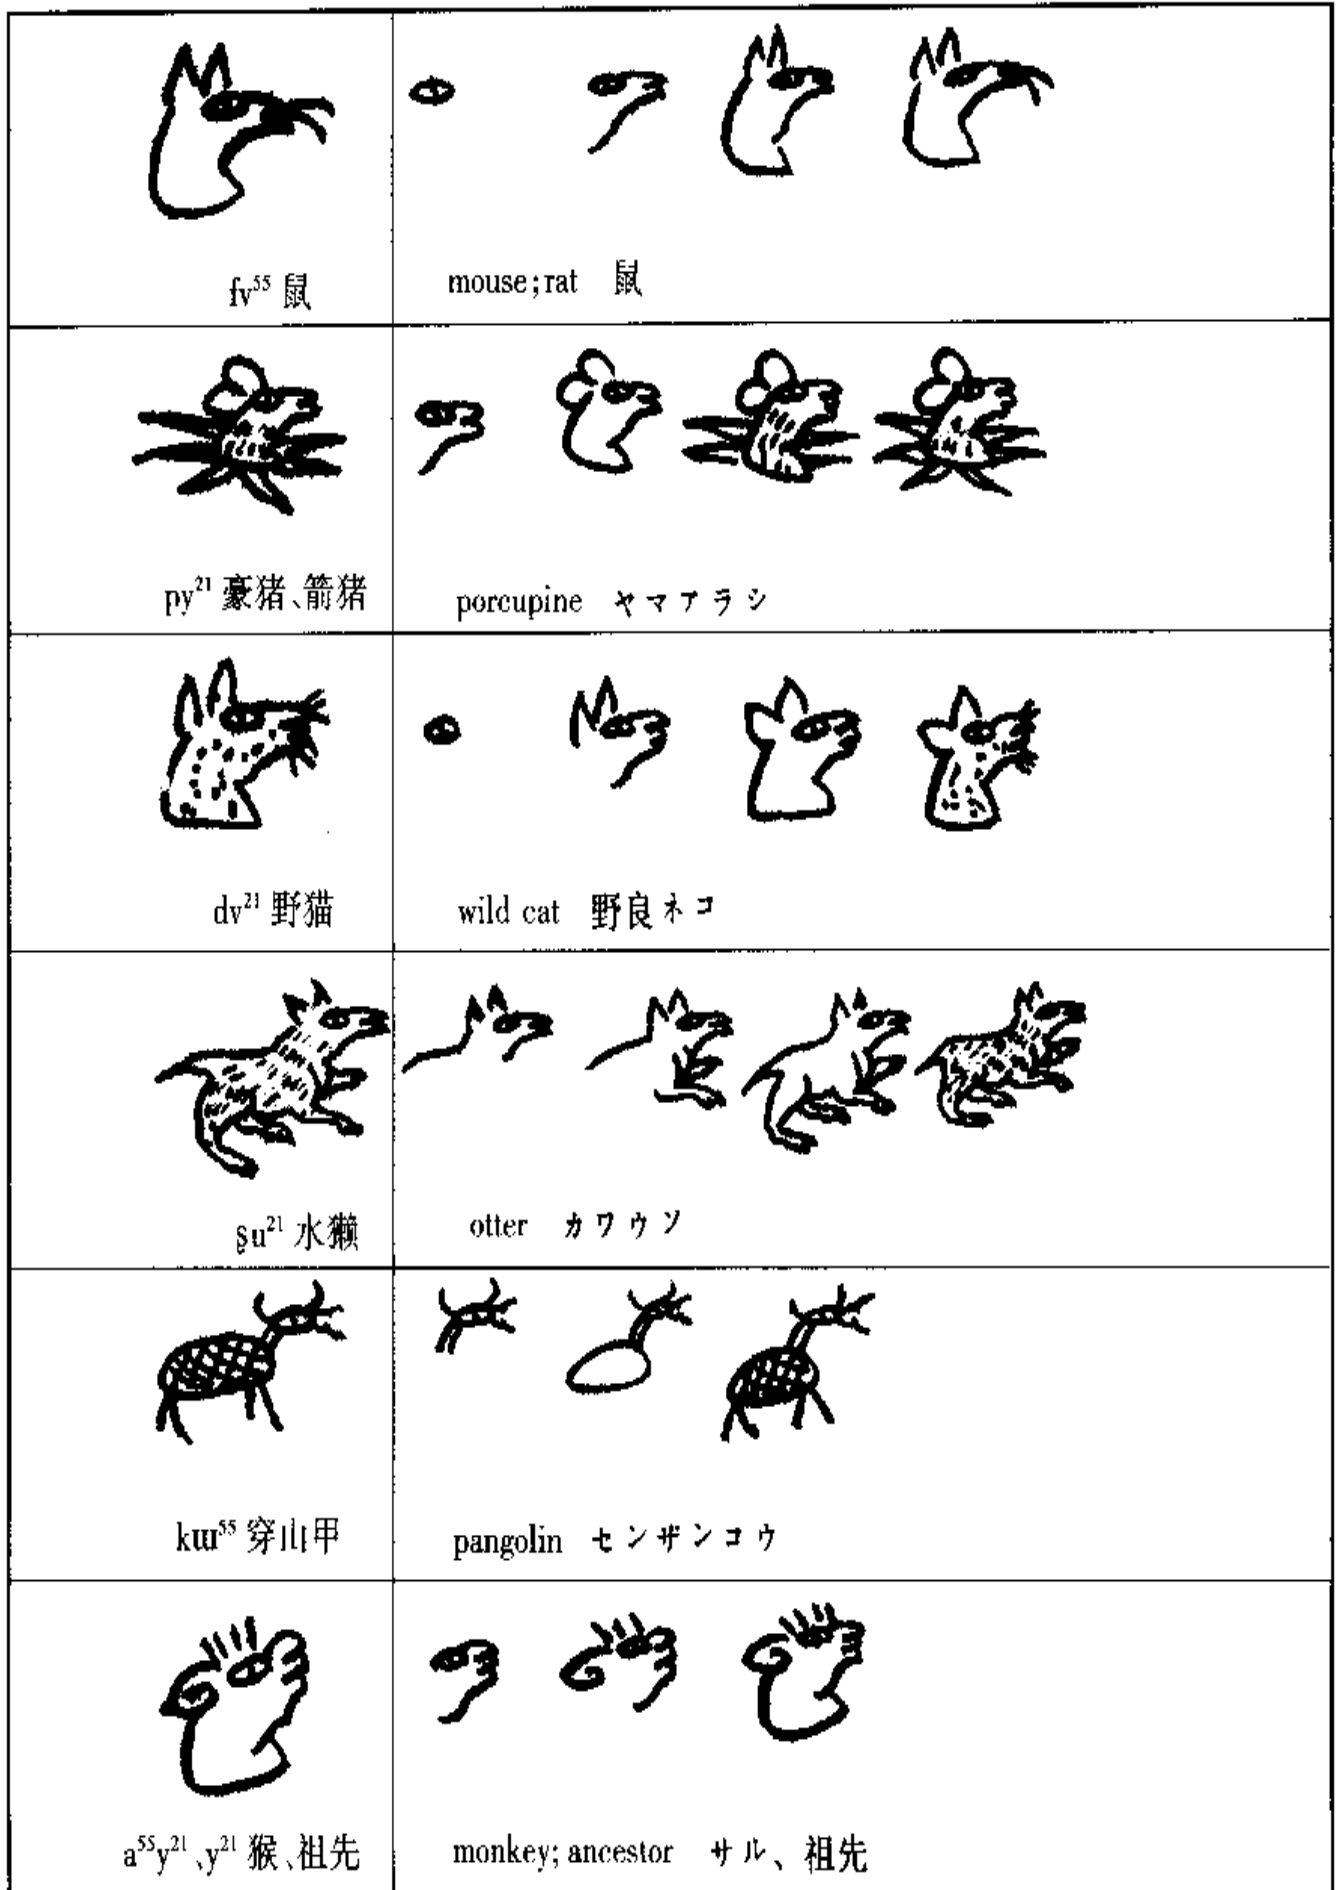 fv⁵⁵ 鼠
mouse; rat 鼠
py²¹ 豪猪、箭猪
porcupine ヤマアラシ
dv²¹ 野猫
wild cat 野良ネコ
ʂu²¹ 水獭
otter カワウソ
kɯ⁵⁵ 穿山甲
pangolin センザンコウ
a⁵⁵y²¹、y²¹ 猴、祖先
monkey; ancestor サル、祖先